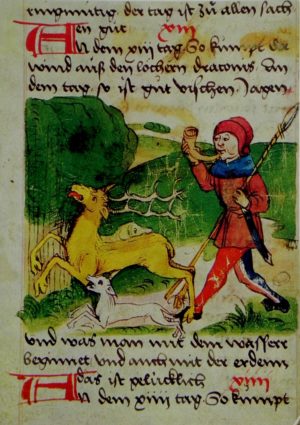 enmutig der tag ist zu allen sach
en gut xiii
An dem xiii tag So kumpt der
wind auß den lochern draconis An
dem tag so ist gut vischen Jagen
und was man mit dem wasser
beginnet und auch mit der erdenn
das ist gelücklich xiiii
An dem xiiii tag So kumpt